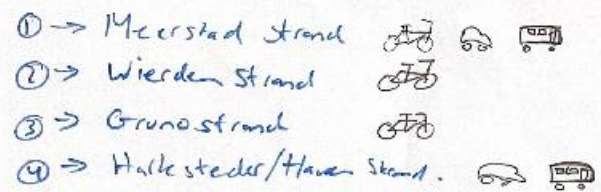 ① → Meerstad strand
② → Wierden Strand
③ → Grunostrand
④ → Harksteder/Haven Strand.